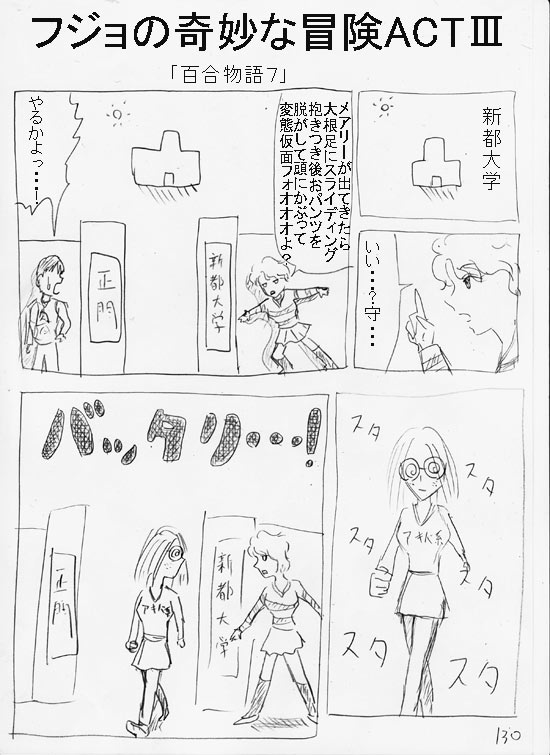 フジョの奇妙な冒険ACTⅢ
「百合物語7」
新都大学
いい・・・?守・・・
メアリーが出てきたら
大根足にスライディング
抱きつき後おパンツを
脱がして頭にかぶって
変態仮面フォオオオオよ?
やるかよっ・・・!
新都大学
正門
スタ
スタ
スタ
スタ
スタ
スタ
アキバ系
バッタリ・・・!
新都大学
アキバ系
正門
130